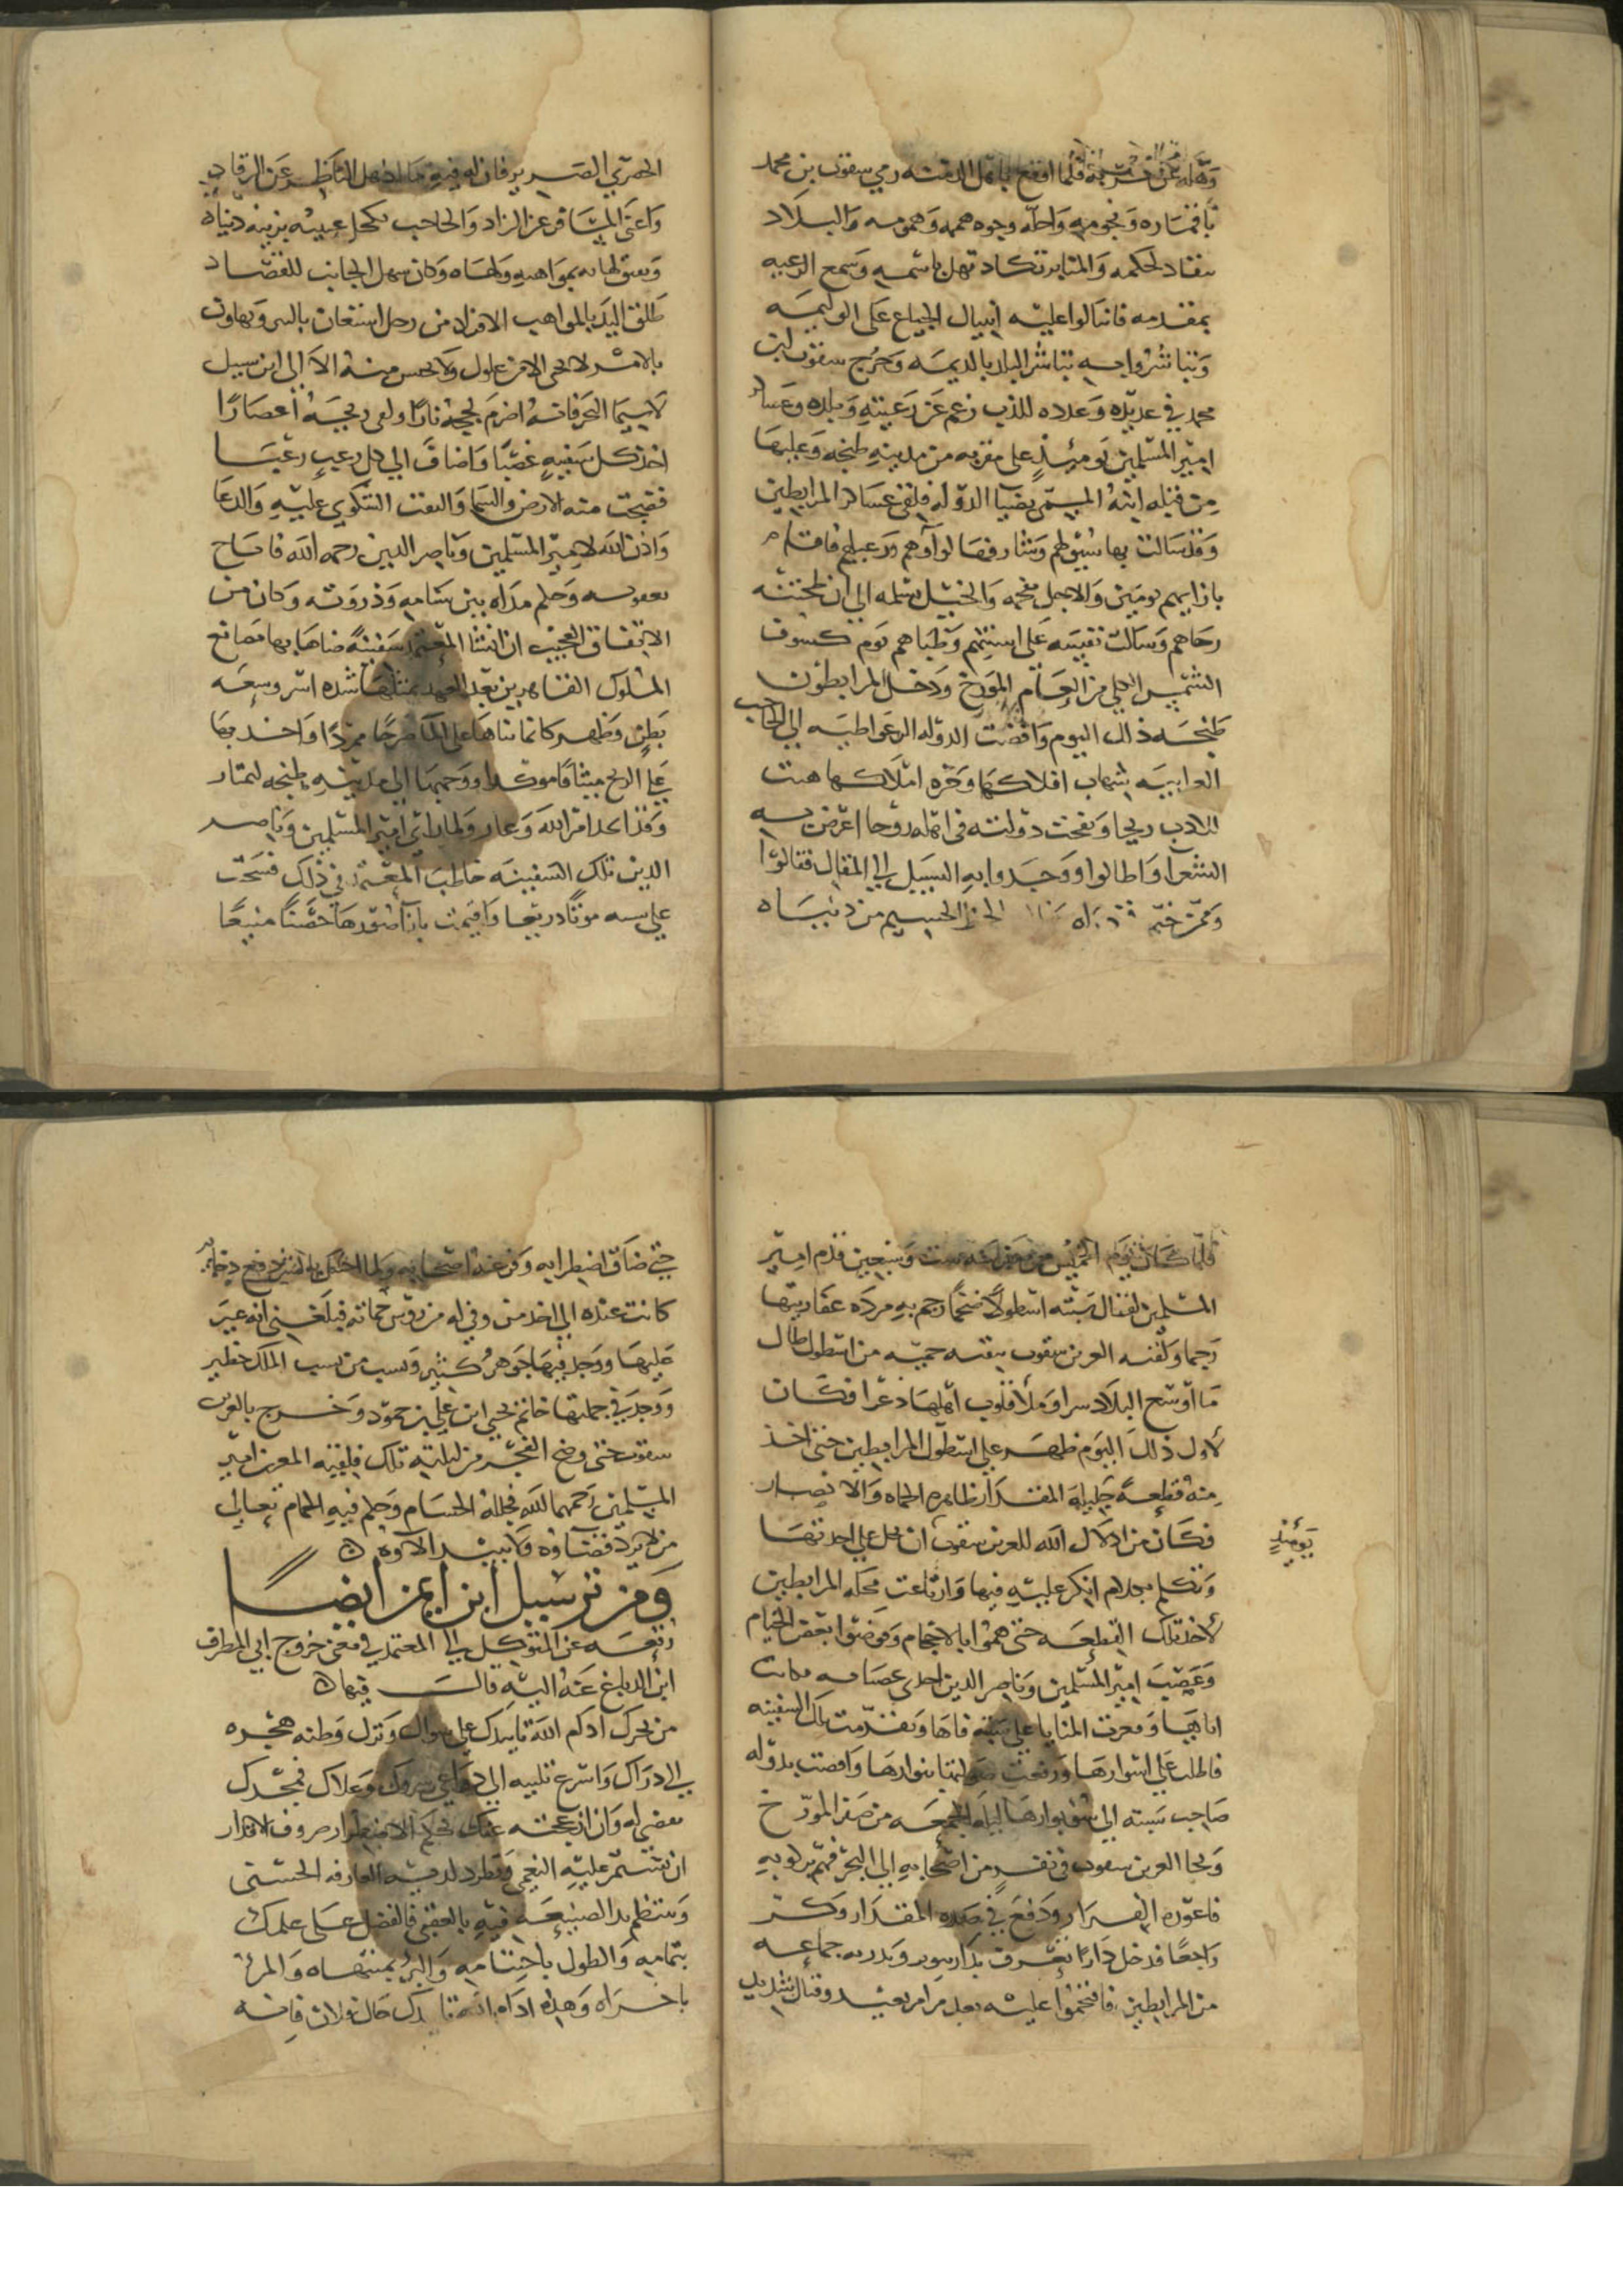 وقله عن فلما افضح باهل الدمنه رمي سقوت بن محمد
باقماره ونجومه واحله وجوه هممه وهمومه والبلاد
تنقاد لحكمه والمنابر تكاد تهل باسمه وسمع الرعيه
بمقدمه فانثالوا عليه انثيال الجياع على الوليمه
وتباشروا به تباشر البلاد بالديمه وخرج سقوت بن
محمد في عديده وعدده للذب زعم عن رعيته وبلده وعساكر
امير المسلمين يومئذ على مقربه من مدينة طنجه وعليها
من قبله ابنه المسمى بضيا الدوله فلقي عساكر المرابطين
وقد سالت بها سيولهم وثار قصا لواوهم ورعيلهم فاقام
بازايهم يومين والاجل مخيمه والخيل تسلمه الى ان طحنته
رحاهم وسالت نفسه على اسنتهم وظباهم يوم كسوف
الشمس الكلي من العام المورخ ودخل المرابطون
طنجه ذلك اليوم وافضت الدوله البرغواطيه الى الحاجب
العز ابنه شهاب افلاكها وخره املاكها هبت
للادب ريحا ونفخت دولته في اهله روحا اعرض به
الشعرا واطالوا ووجدوا به السبيل الى المقال فقالوا
وممن خيم في ذراه الحظ الجسيم من دنياه
الحصري الضرير فان له فيه ما اذهل الناظر عن الرقاد
واغنى المسافر عن الزاد والحاجب يكحل عينيه بزينه دنياه
ويفتق لهاته بمواهبه ولهاه وكان سهل الجانب للقصاد
طلق اليد بالمواهب الافراد من رجل استعان بالشر وتهاون
بالامر لا يجبي الا من غلول ولا يحسن منه الا الى ابن سبيل
لا سيما البحر فانه اضرم لججه نارا ولقي ريحه اعصارا
اخذ كل سفينه غصبا واضاف الى كل رعب رعبا
فضجت منه الارض والسما والتقت الشكوي عليه والدعا
واذن الله لامير المسلمين وناصر الدين رحمه الله فاناخ
بعقوته وحكم مداه بين سنامه وذروته وكان من
الاتفاق العجيب ان انشا المعتمد سفينة ضاهى بها مصانع
الملوك القاهرين بعد العهد بمثلها شده اسر وسعه
بطن وظهر كانما بناها على الما صرحا ممردا واخذ بها
على الريح ميثاقا موكدا ووجهها الى مدينة طنجه لتمتار
وقد احد امر الله وعار ولما راى امير المسلمين وناصر
الدين تلك السفينه خاطب المعتمد في ذلك فسخت
على سبته موتا ذريعا واقيمت بازا سورها حصنا منيعا
فلما كان يوم الخميس من صفر سنه ست وسبعين قدم امير
المسلمين لقتال سبته اسطولا ضخما رجم به مرده عفاريتها
رجما ولقيه العز بن سقوت بقيه حميه من اسطول طال
ما اوسع البلاد سرا وملا قلوب اهلها ذعرا فكان
لاول ذلك اليوم ظهر على اسطول المرابطين حتى اخذ
منه قطعه جليله المقدار ظاهره الحماه والانصار
فكان من اذلال الله للعز بن سقوت ان حل على احد
وتكلم بكلام انكر عليه فيها وارتاعت محله المرابطين
يومئذ
لاخذ تلك القطعه حتى هموا بالاحجام وقوضوا بعض الخيام
وغضب امير المسلمين وناصر الدين احدى غضباته فكانت
اياها وفغرت المنايا على سبته فاها وتقدمت تلك السفينه
فاطلت على اسوارها ورفعت صواتها بنوارها وافضت بدوله
صاحب سبته الى سو بوارها ليله الجمعه من صفر المورخ
ونجا العز بن سقوت في نفر من اصحابه الى البحر فهم بركوبه
فاعوزه الفرار ودفع في صدره المقدار وكر
راجعا فدخل دارا تعرف بدار سوير وبدر به جماعه
من المرابطين فاقتحموا عليه بعد مرام بعيد وقتال شديد
حتى ضاق اضطرابه وفر عنه اصحابه ولما احس بالشر دفع ذخاير
كانت عنده الى احد من وفى له من روس حماته فبلغني انه عثر
عليها ووجد فيها جوهر كثير ونسب من نسب الملك خطير
ووجد في جملتها خاتم يحيى ابن علي بن حمود وخرج بالعز بن
سقوت حتى وضح الفجر من ليلته تلك فلقيه المعز امير
المسلمين رحمهما الله فجلله الحسام وحكم فيه الحمام تعالى
من لا يرد قضاوه ولا يبيد الاوه
ومن ترسيل ابن ايمن ايضا
رقعه عن المتوكل الى المعتمد في معنى خروج ابي المطرف
ابن الدباغ عنه اليه قال فيها
من تحرك ادام الله تاييدك على سوال ونزل وطنه هجره
الى ذراك واسرع تلبيه الى دواعي سروك وعلاك فمجدك
يقضي له وان ازعجته عنك تحكم الاضطرار صروف الاقدار
ان تستمر عليه النعمى وتطرد لديه العارفه الحسنى
وينتظم بدا الصنيعه فيه بالعقبى فالفضل على علمك
بتمامه والطول باختتامه والبر بمنتهاه والمرء
باخراه وهذه ادام الله تاييدك حال فلان فانه